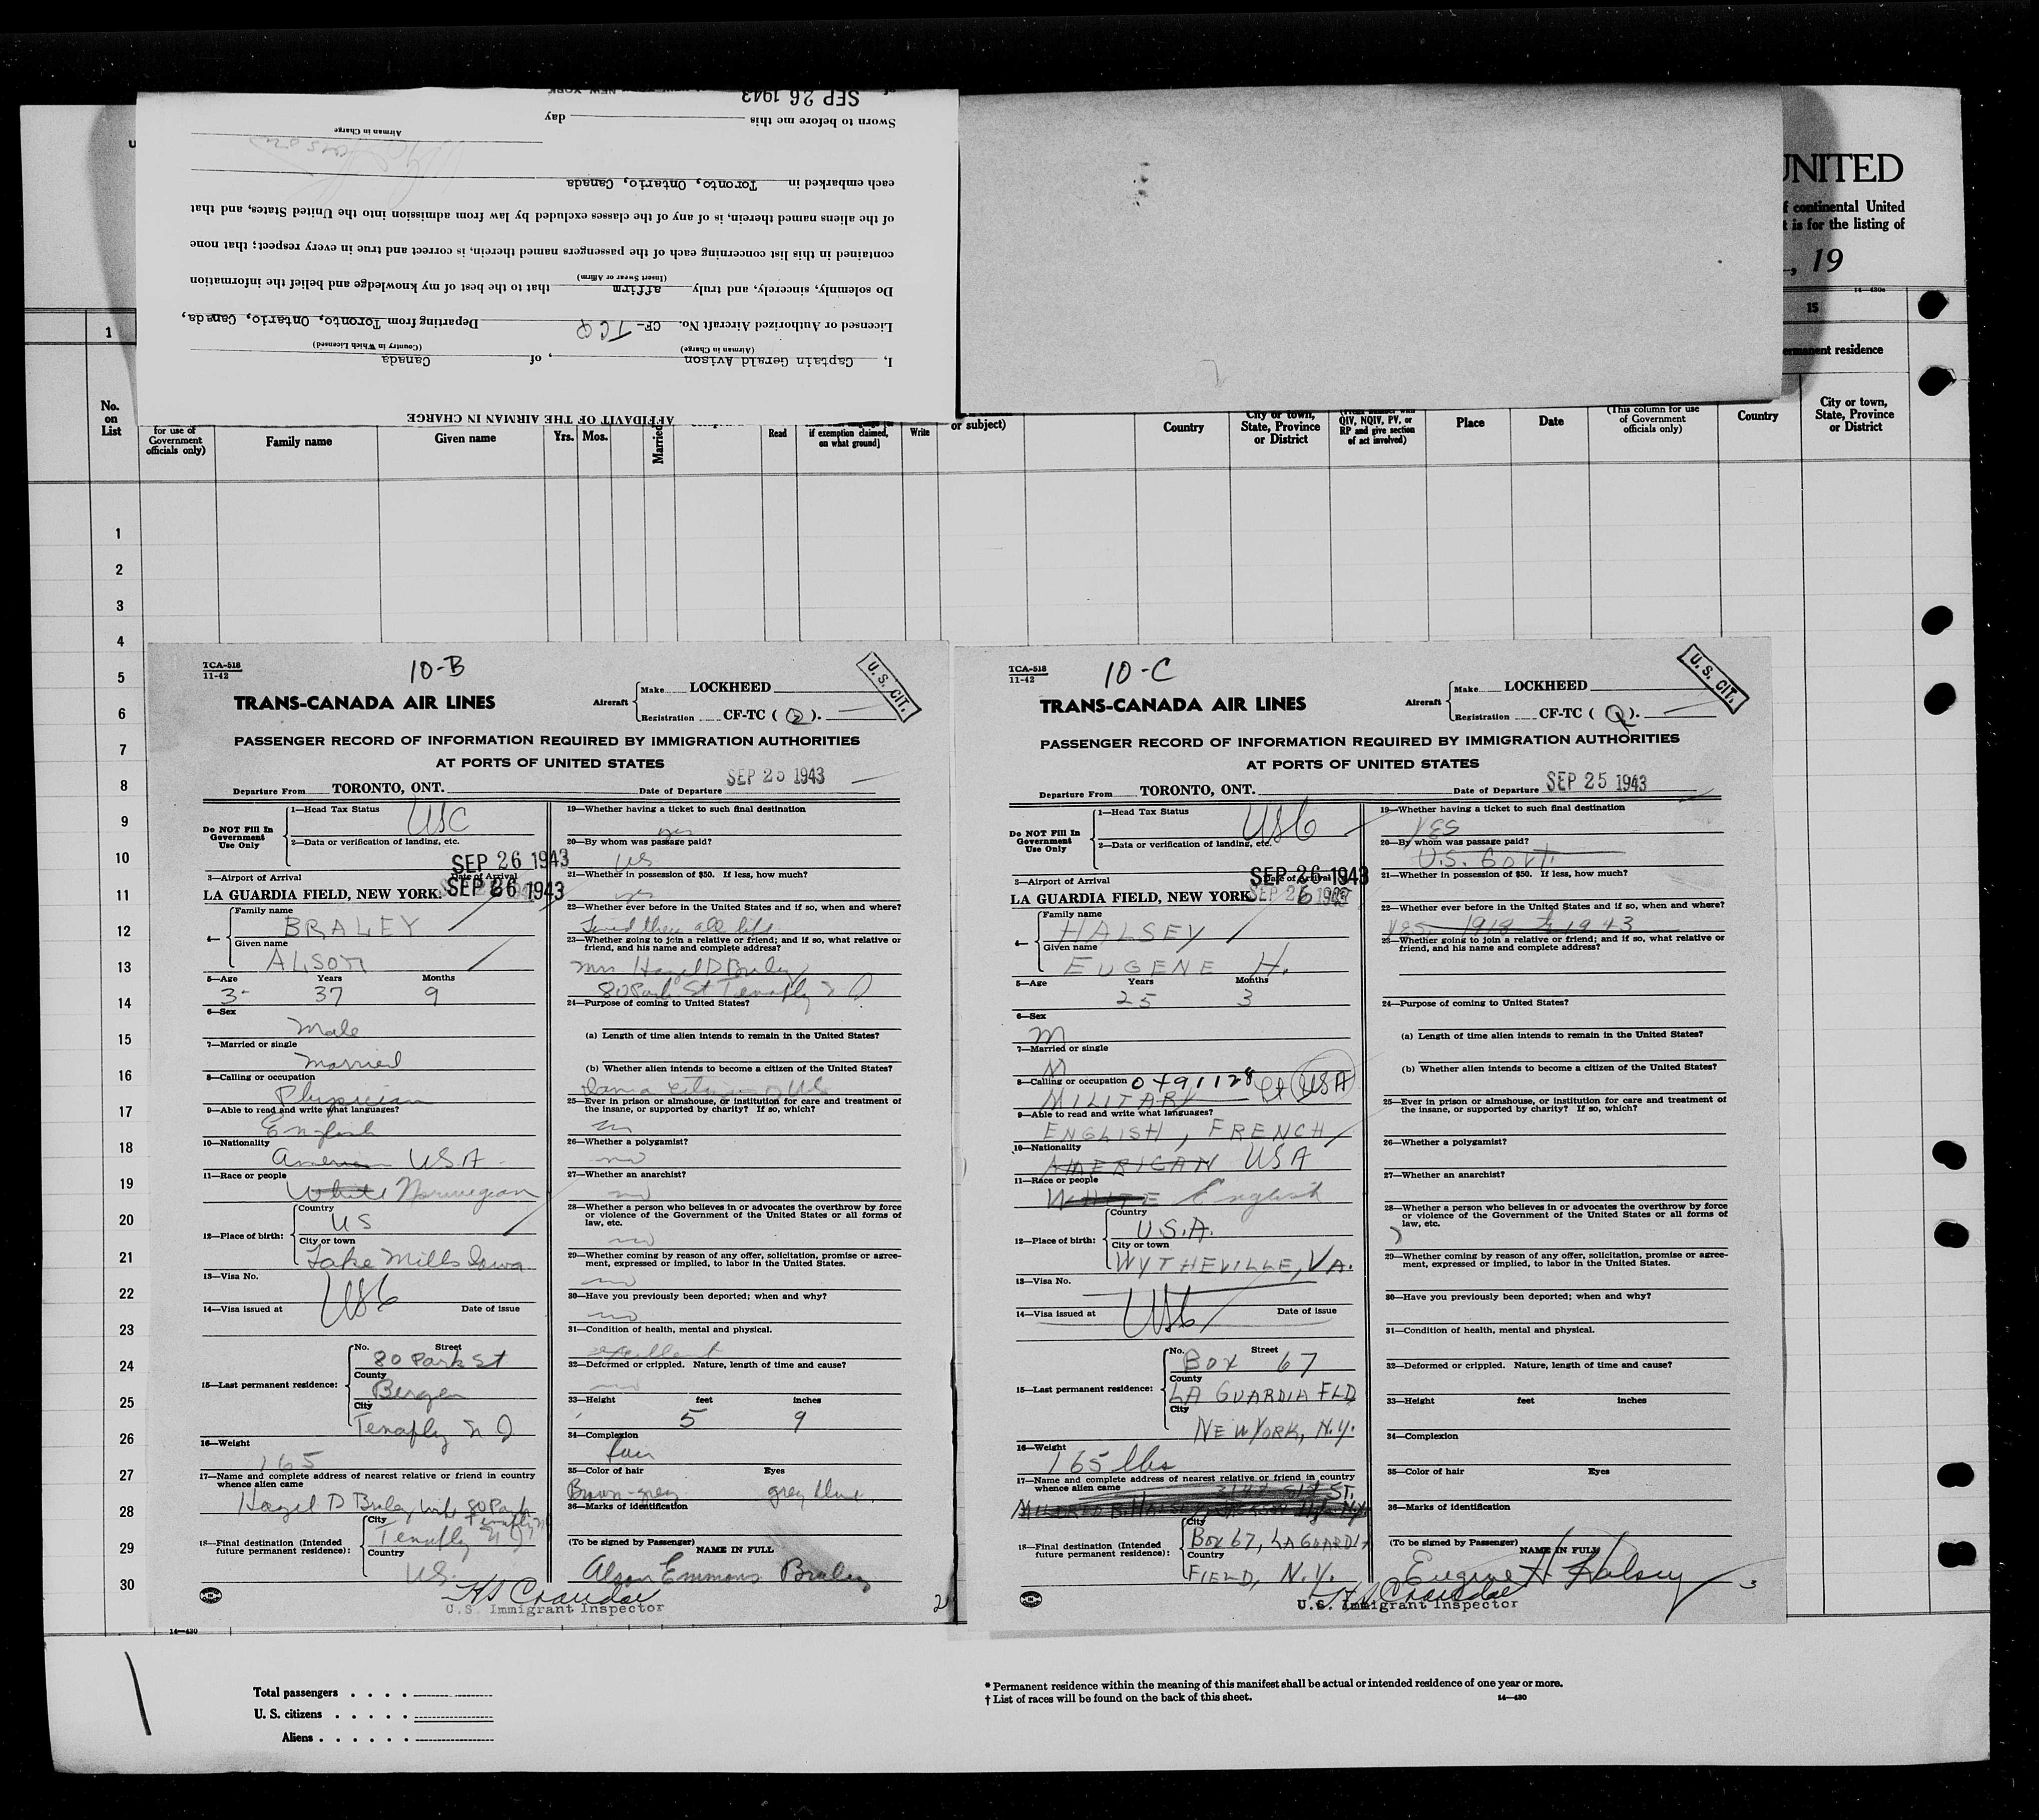 AFFIDAVIT OF THE AIRMAN IN CHARGE
I, Captain Gerald Avison, of Canada
(Airman in Charge) (Country in Which Licensed)
Licensed or Authorized Aircraft No. CF-TCQ Departing from Toronto, Ontario, Canada,
Do solemnly, sincerely, and truly affirm that to the best of my knowledge and belief the information
(Insert Swear or Affirm)
contained in this list concerning each of the passengers named therein, is correct and true in every respect; that none
of the aliens named therein, is of any of the classes excluded by law from admission into the United States, and that
each embarked in Toronto, Ontario, Canada
Airman in Charge
Sworn to before me this day
of SEP 26 1943
NEW YORK
UNITED
f continental United
t is for the listing of
, 19
14-430a
1
15
ermanent residence
No. on List
for use of
Government
officials only)
Family name
Given name
Yrs. Mos.
Married
Read
if exemption claimed,
on what ground]
Write
or subject)
Country
City or town,
State, Province
or District
QIV, NQIV, PV, or
RP and give section
of act involved)
Place
Date
(This column for use
of Government
officials only)
Country
City or town,
State, Province
or District
1
2
3
4
5
6
7
8
9
10
11
12
13
14
15
16
17
18
19
20
21
22
23
24
25
26
27
28
29
30
TCA-518
11-42
10-B
U. S. CIT.
TRANS-CANADA AIR LINES
Aircraft Make LOCKHEED
Registration CF-TC (Q).
PASSENGER RECORD OF INFORMATION REQUIRED BY IMMIGRATION AUTHORITIES
AT PORTS OF UNITED STATES
Departure From TORONTO, ONT. Date of Departure SEP 25 1943
Do NOT Fill In
Government
Use Only
1—Head Tax Status USC
2—Data or verification of landing, etc.
SEP 26 1943
3—Airport of Arrival Date of Arrival
LA GUARDIA FIELD, NEW YORK. SEP 26 1943
4— Family name BRALEY
Given name ALSON
5—Age Years Months
3- 37 9
6—Sex
Male
7—Married or single
Married
8—Calling or occupation
Physician
9—Able to read and write what languages?
English
10—Nationality
American USA
11—Race or people
White Norwegian
12—Place of birth: Country US
City or town
Lake Mills Iowa
13—Visa No.
USC
14—Visa issued at Date of issue
15—Last permanent residence: No. Street
80 Park St
County
Bergen
City
Tenafly N J
16—Weight
165
17—Name and complete address of nearest relative or friend in country
whence alien came
Hazel D Braley wife 80 Park
Tenafly N J
18—Final destination (Intended
future permanent residence): City
Tenafly N J
Country
U.S.
19—Whether having a ticket to such final destination
yes
20—By whom was passage paid?
US
21—Whether in possession of $50. If less, how much?
yes
22—Whether ever before in the United States and if so, when and where?
Lived there all life
23—Whether going to join a relative or friend; and if so, what relative or
friend, and his name and complete address?
Mrs Hazel D Braley
80 Park St Tenafly N J
24—Purpose of coming to United States?
(a) Length of time alien intends to remain in the United States?
(b) Whether alien intends to become a citizen of the United States?
25—Ever in prison or almshouse, or institution for care and treatment of
the insane, or supported by charity? If so, which?
no
26—Whether a polygamist?
no
27—Whether an anarchist?
no
28—Whether a person who believes in or advocates the overthrow by force
or violence of the Government of the United States or all forms of
law, etc.
no
29—Whether coming by reason of any offer, solicitation, promise or agree-
ment, expressed or implied, to labor in the United States.
no
30—Have you previously been deported; when and why?
no
31—Condition of health, mental and physical.
excellent
32—Deformed or crippled. Nature, length of time and cause?
no
33—Height feet inches
5 9
34—Complexion
fair
35—Color of hair Eyes
Brown-grey grey blue
36—Marks of identification
(To be signed by Passenger) NAME IN FULL
Alson Emmons Braley
H S Crandall
U.S. Immigrant Inspector
2
TCA-518
11-42
10-C
U. S. CIT.
TRANS-CANADA AIR LINES
Aircraft Make LOCKHEED
Registration CF-TC (Q).
PASSENGER RECORD OF INFORMATION REQUIRED BY IMMIGRATION AUTHORITIES
AT PORTS OF UNITED STATES
Departure From TORONTO, ONT. Date of Departure SEP 25 1943
Do NOT Fill In
Government
Use Only
1—Head Tax Status USC
2—Data or verification of landing, etc.
SEP 26 1943
3—Airport of Arrival Date of Arrival
LA GUARDIA FIELD, NEW YORK
4— Family name HALSEY
Given name EUGENE H.
5—Age Years Months
25 3
6—Sex
M
7—Married or single
M
8—Calling or occupation 0491128 Lt USA
MILITARY
9—Able to read and write what languages?
ENGLISH, FRENCH
10—Nationality
AMERICAN USA
11—Race or people
WHITE English
12—Place of birth: Country
U.S.A.
City or town
WYTHEVILLE, VA.
13—Visa No.
USC
14—Visa issued at Date of issue
15—Last permanent residence: No. Street
BOX 67
County
LA GUARDIA FLD
City
NEW YORK, N.Y.
16—Weight
165 lbs
17—Name and complete address of nearest relative or friend in country
whence alien came
ST.
18—Final destination (Intended
future permanent residence): City
BOX 67, LA GUARDIA
Country
FIELD, N.Y.
19—Whether having a ticket to such final destination
YES
20—By whom was passage paid?
U.S. GOVT.
21—Whether in possession of $50. If less, how much?
22—Whether ever before in the United States and if so, when and where?
YES, 1918 to 1943
23—Whether going to join a relative or friend; and if so, what relative or
friend, and his name and complete address?
24—Purpose of coming to United States?
(a) Length of time alien intends to remain in the United States?
(b) Whether alien intends to become a citizen of the United States?
25—Ever in prison or almshouse, or institution for care and treatment of
the insane, or supported by charity? If so, which?
26—Whether a polygamist?
27—Whether an anarchist?
28—Whether a person who believes in or advocates the overthrow by force
or violence of the Government of the United States or all forms of
law, etc.
29—Whether coming by reason of any offer, solicitation, promise or agree-
ment, expressed or implied, to labor in the United States.
30—Have you previously been deported; when and why?
31—Condition of health, mental and physical.
32—Deformed or crippled. Nature, length of time and cause?
33—Height feet inches
34—Complexion
35—Color of hair Eyes
36—Marks of identification
(To be signed by Passenger) NAME IN FULL
Eugene H Halsey
H S Crandall
U.S. Immigrant Inspector
3
14—430
Total passengers . . . .
U. S. citizens . . . . .
Aliens . . . . . .
* Permanent residence within the meaning of this manifest shall be actual or intended residence of one year or more.
† List of races will be found on the back of this sheet. 14—430